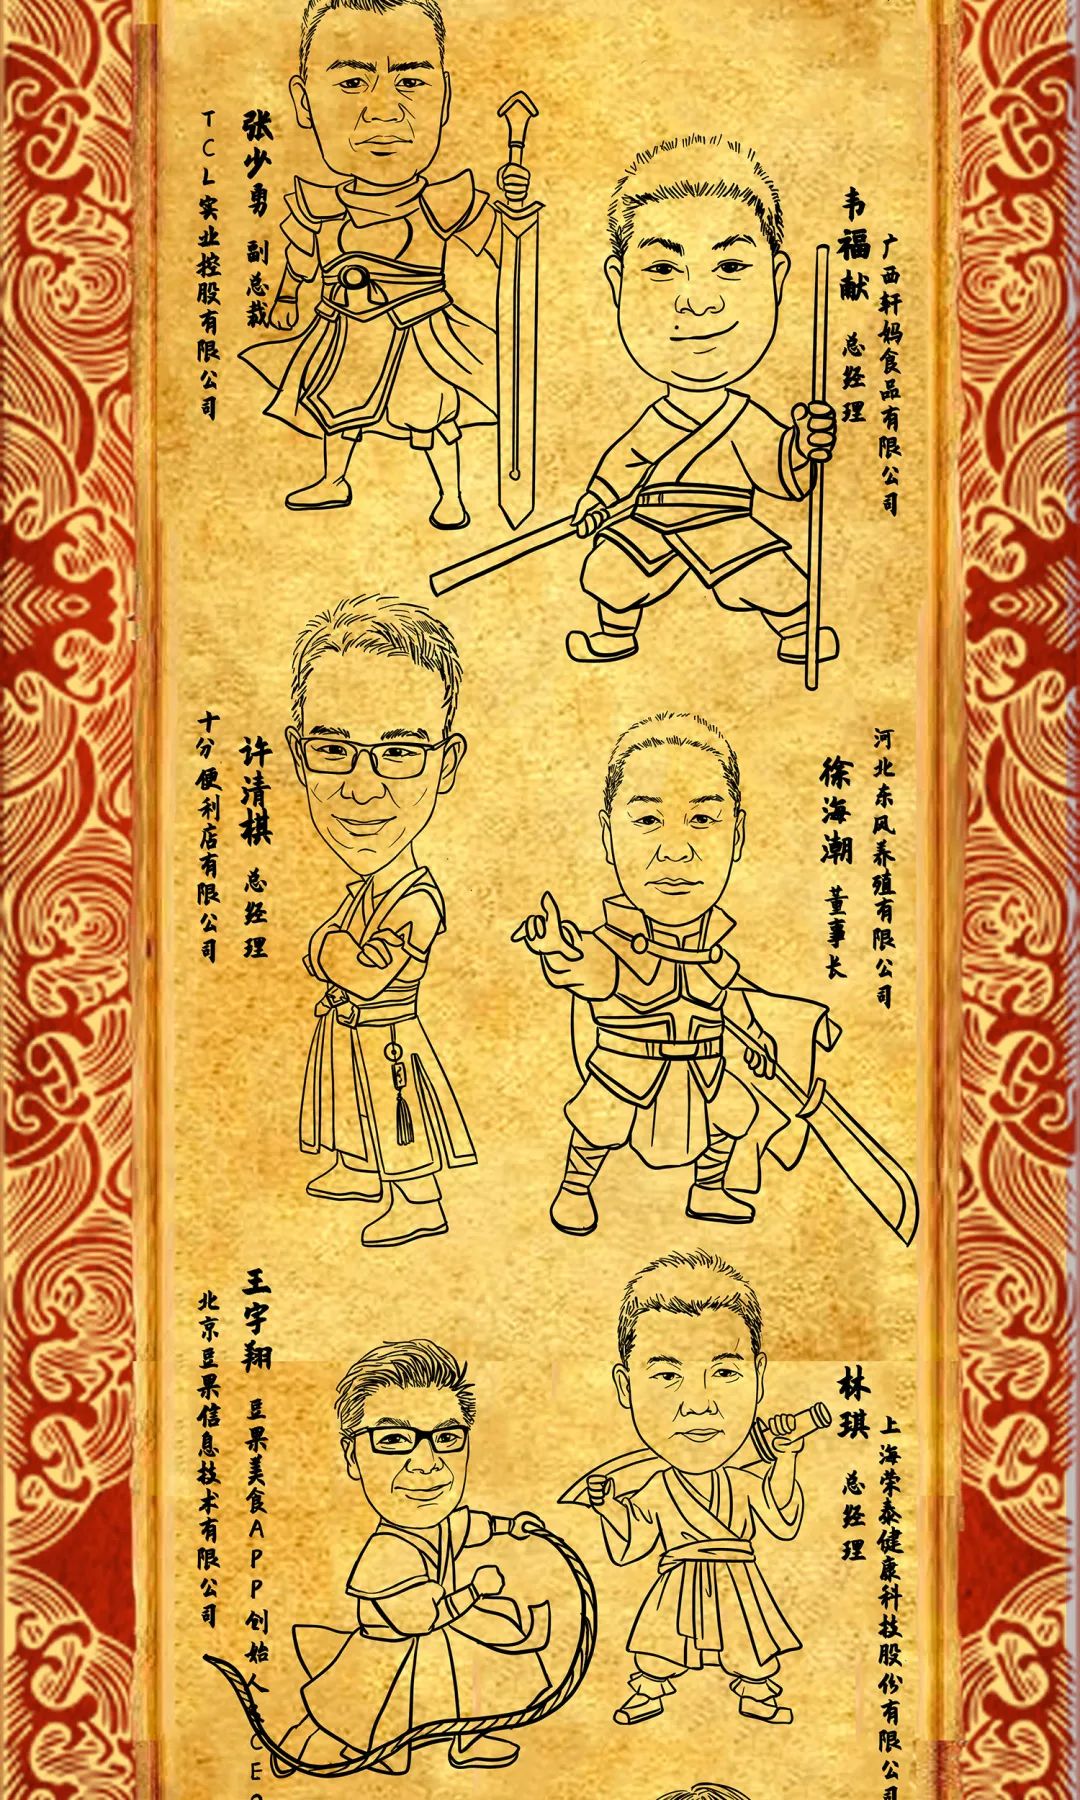 张少勇 副总裁
TCL实业控股有限公司
韦福献 总经理
广西轩妈食品有限公司
许清棋 总经理
十分便利店有限公司
徐海潮 董事长
河北东风养殖有限公司
王宇翔 豆果美食APP创始人&CEO
北京豆果信息技术有限公司
林琪 总经理
上海荣泰健康科技股份有限公司